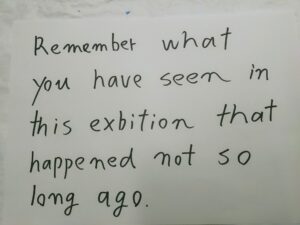 Remember what
you have seen in
this exbition that
happened not so
long ago.